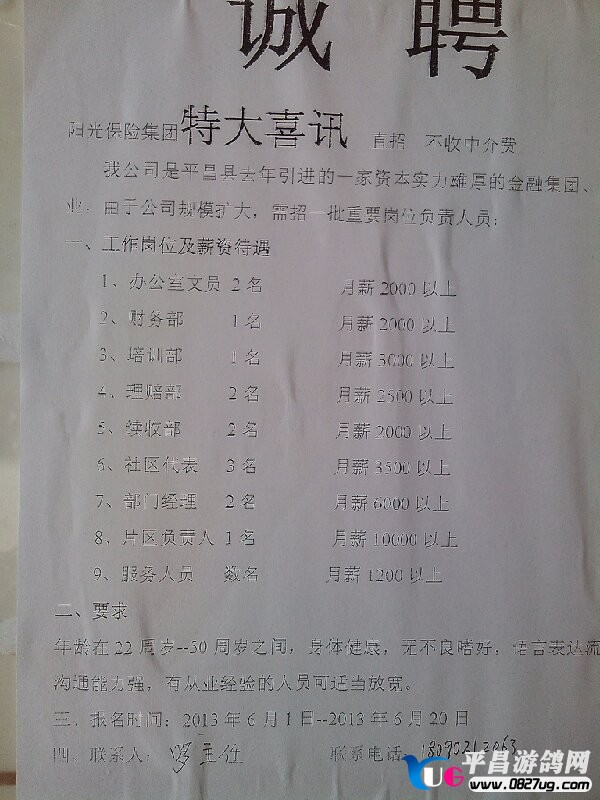 诚 聘
阳光保险集团特大喜讯 直招 不收中介费
我公司是平昌县去年引进的一家资本实力雄厚的金融集团、
业。由于公司规模扩大，需招一批重要岗位负责人员：
一、工作岗位及薪资待遇
1、办公室文员 2名 月薪 2000 以上
2、财务部 1名 月薪 2000 以上
3、培训部 1名 月薪 3000 以上
4、理赔部 2名 月薪 2500 以上
5、续收部 2名 月薪 2000 以上
6、社区代表 3名 月薪 3500 以上
7、部门经理 2名 月薪 6000 以上
8、片区负责人 1名 月薪 10000 以上
9、服务人员 数名 月薪 1200 以上
二、要求
年龄在 22 周岁--50 周岁之间，身体健康，无不良嗜好，语言表达流
沟通能力强，有从业经验的人员可适当放宽。
三、报名时间：2013 年 6 月 1 日--2013 年 6 月 20 日
四、联系人： 主任 联系电话：
YUG 平昌游鸽网
www.0827ug.com